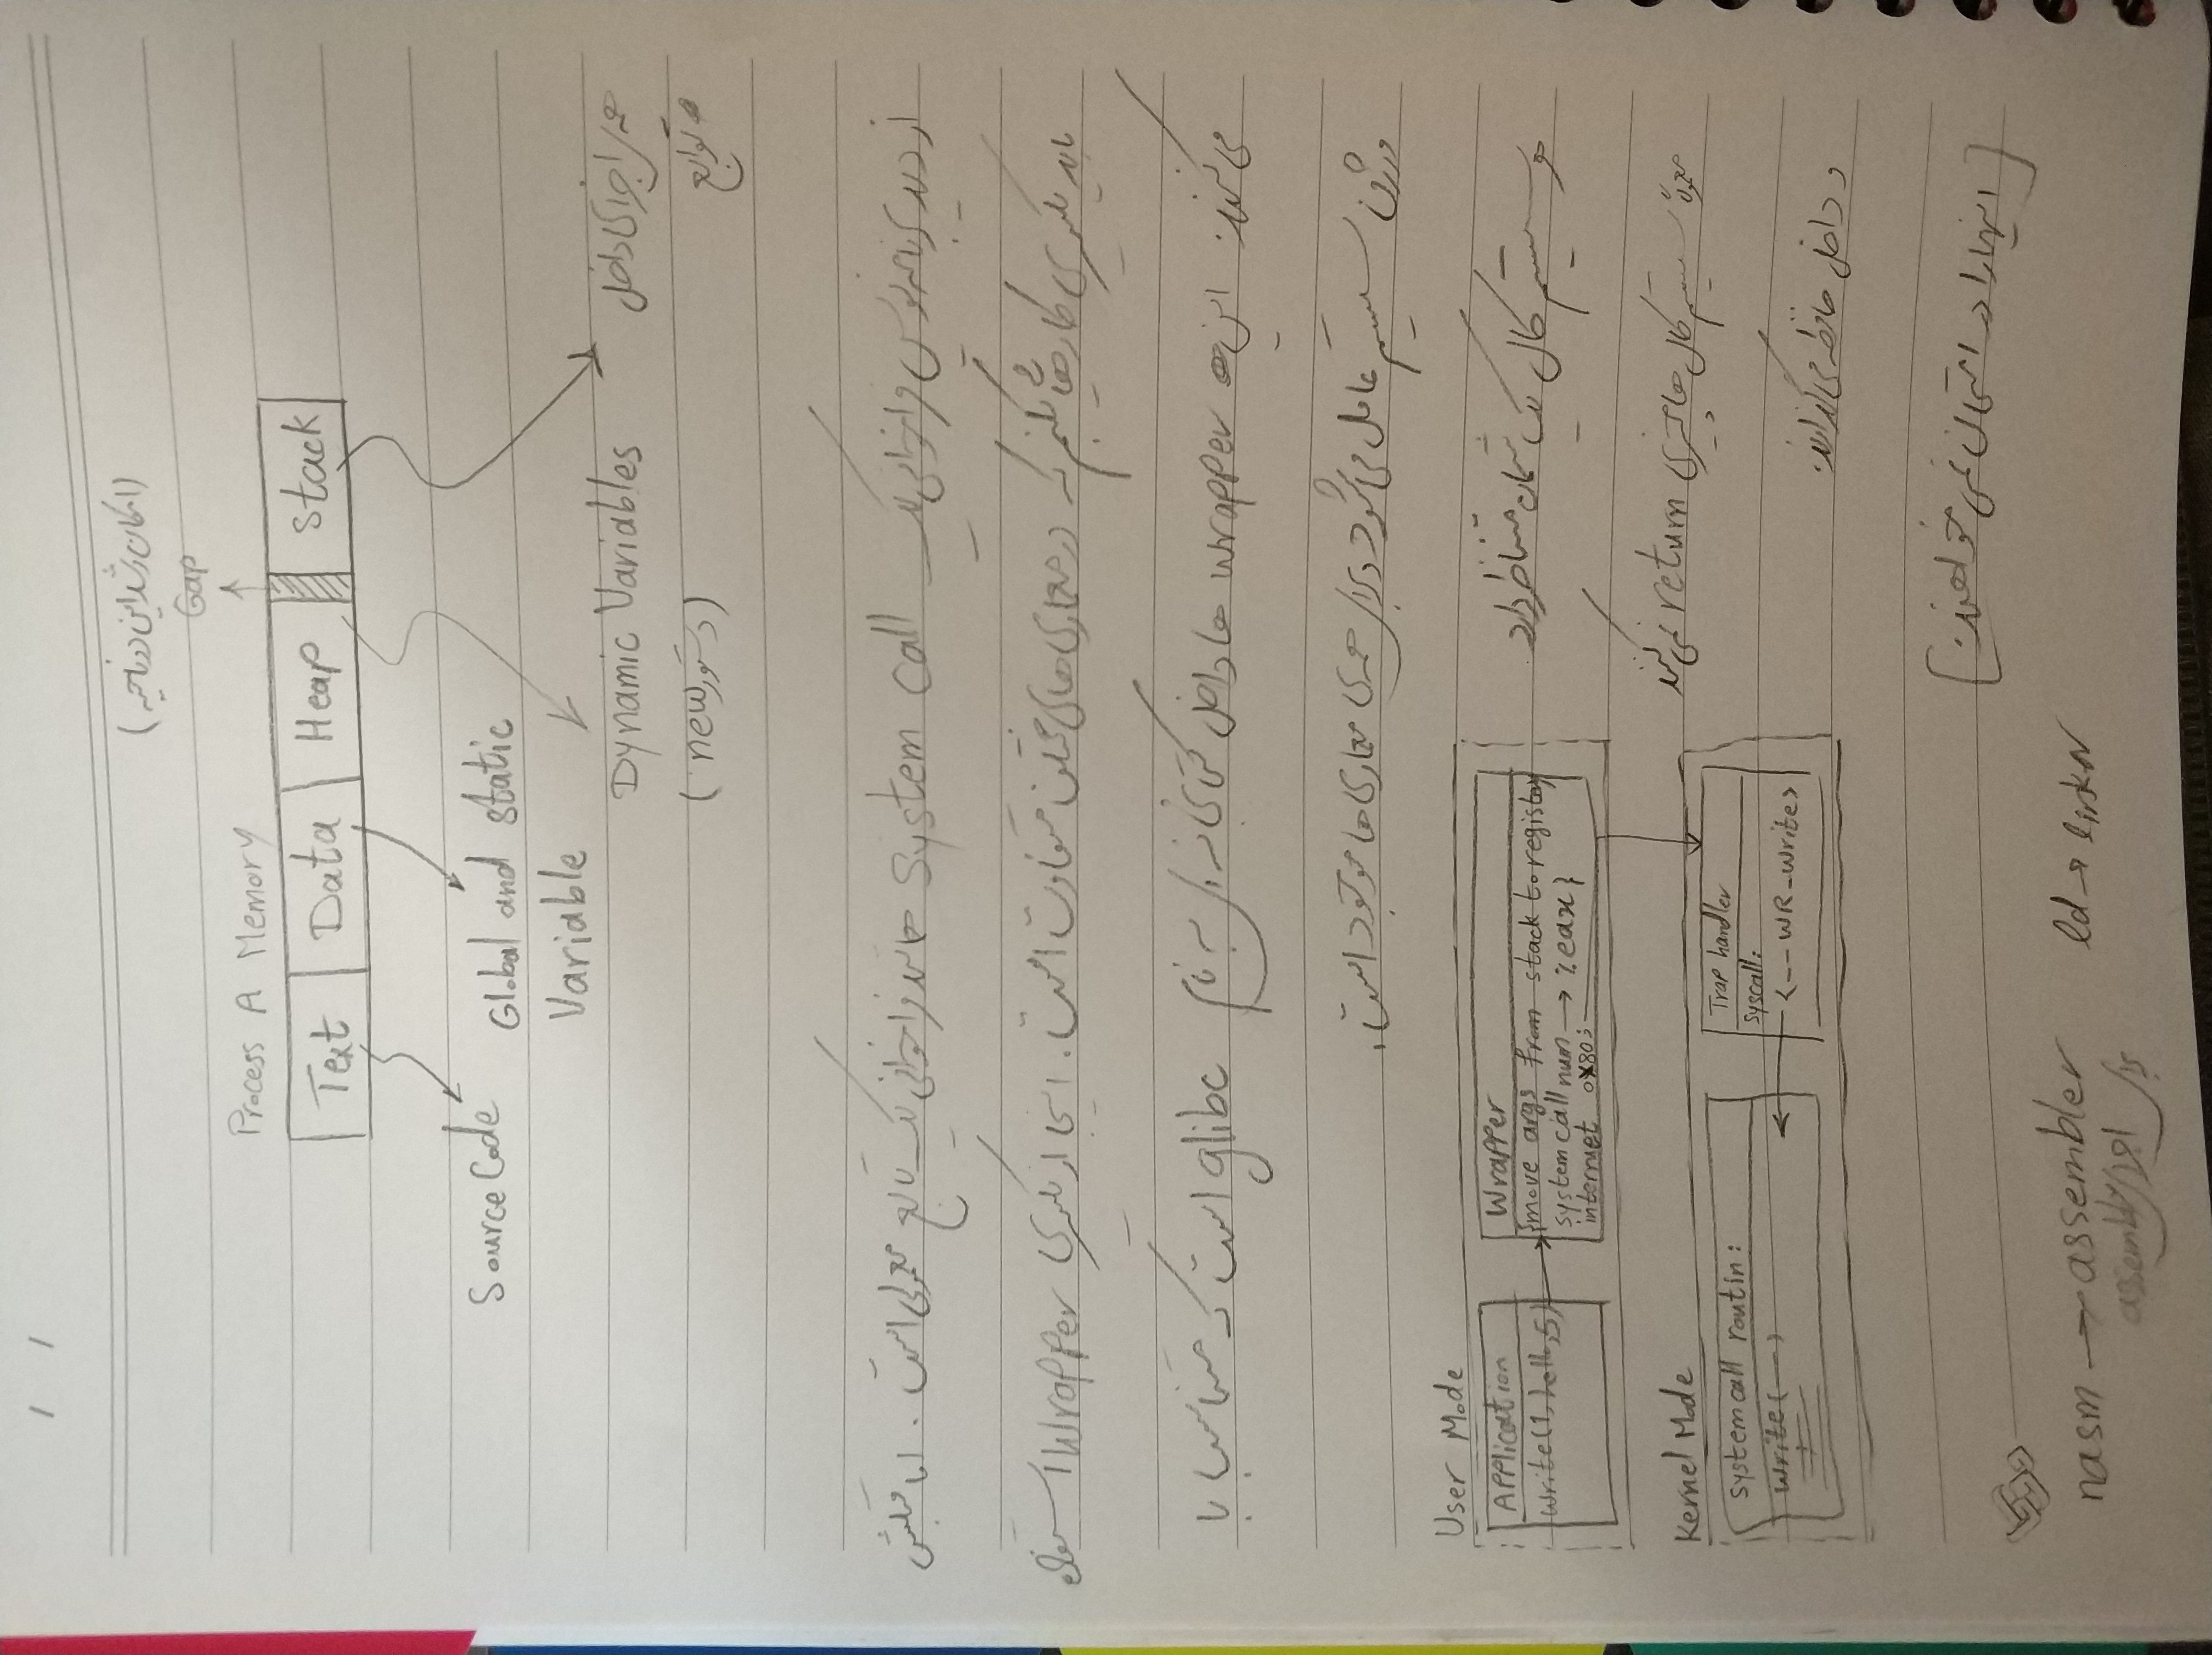 / /
(امکان رشد این دو ناحیه)
Gap
Process A Memory
Text Data Heap Stack
Source Code
Global and static
Variable
Dynamic Variables
(دستور new)
همه‌ی اجزای داخل
توابع
از دید برنامه نویس فراخوانی یک System Call مانند فراخوانی یک تابع معمولی است. اما قبلش
باید یکسری کارهایی بکنیم که در معماری های مختلف متفاوت است. اینجا از یکسری Wrapper استفاده
می کنند. این wrapper ها داخل کتابخانه ای به نام glibc است که متناسب با
ورژن سیستم عامل می شود و برای همه ی معماری ها موجود است.
User Mode
Application
write(1, hello, 5)
Wrapper
{move args from stack to register
system call num → %eax}
internet 0x80;
هر سیستم کال یک شماره متناظر دارد
معمولا سیستم کال ها چیزی return نمی کنند
و داخل حافظه می گذارند.
Kernel Mode
system call routin:
write(---)
Trap handler
syscall:
<-- WR_write>
[اینها را در امتحان نمی خواهند.]
nasm → assembler
برای اجرای assembly
ld → linker